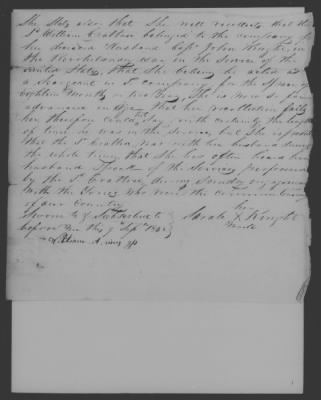 She States also that She well recollects that the
Sd William Cratten belonged to the company of
her deceased Husband Capt John Knight in
the Revolutionary War in the Service of the
United States that She believes he acted as
a Sergeant in Sd Company for the Space of
Eighteen Months or two Years She is now so far
advanced in age that her recollection fails
her therefore cannot say with certainty the length
of time he was in the Service but She is
that the Sd Cratten was with her husband during
the whole time, that She has often heard her
husband Speak of the Services performed
by the Sd Cratten during Sunday
With the Tories who were the common
of our Country
Sworn to & Subscribed
before me this 9th Sept 1842
Sarah X Knight
her
mark